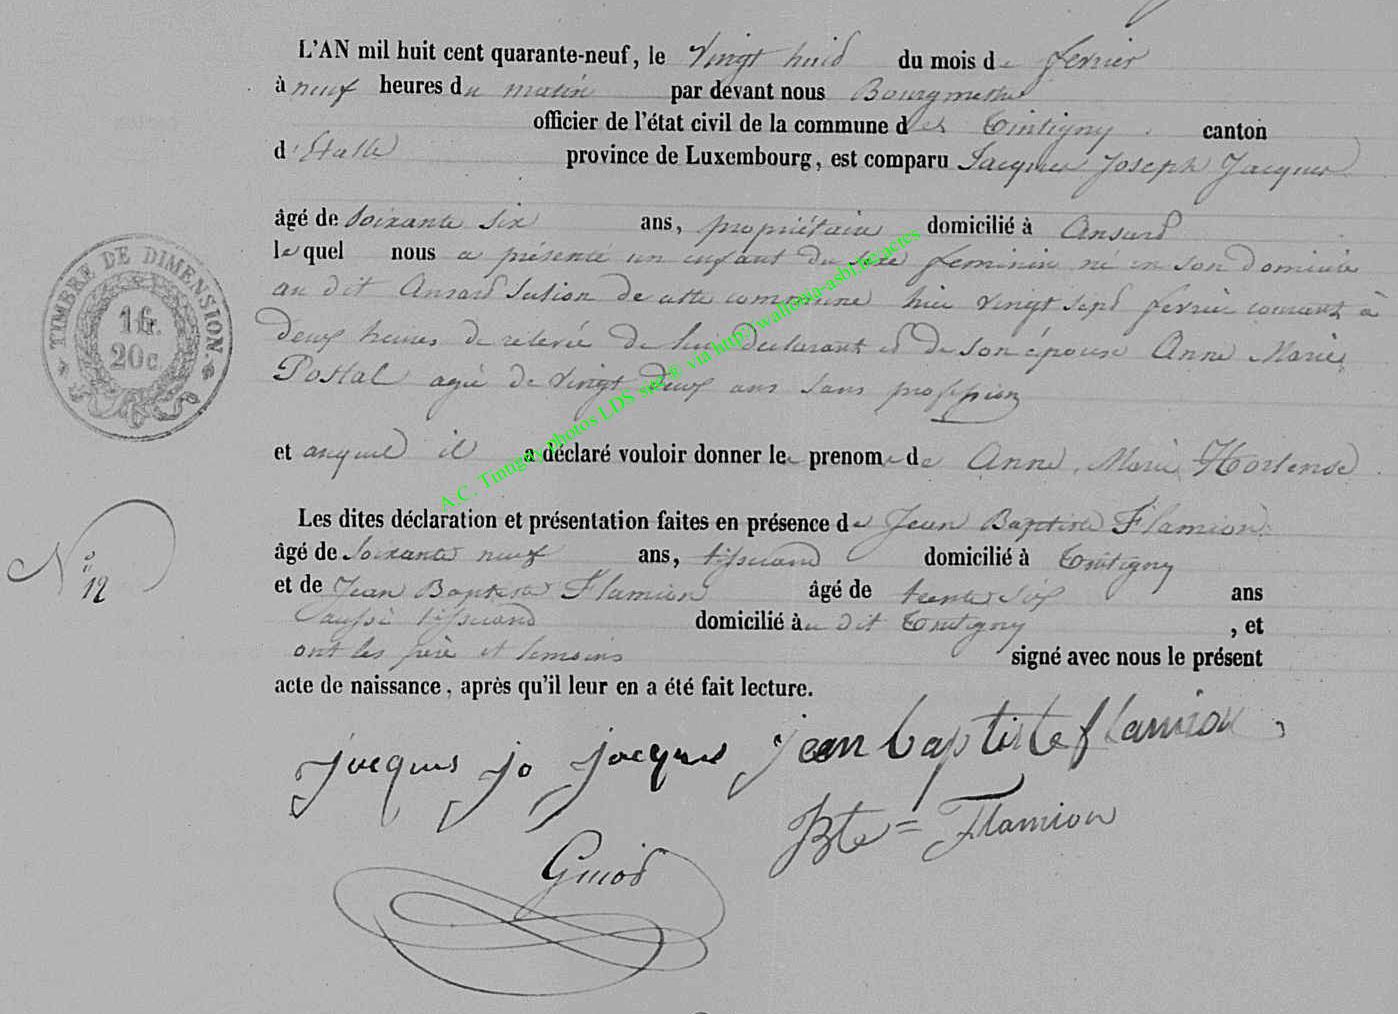 L'AN mil huit cent quarante-neuf, le vingt huid du mois de fevrier
à neuf heures du matin par devant nous Bourgmestre
officier de l'état civil de la commune de Tintigny canton
d'Etalle province de Luxembourg, est comparu Jacques Joseph Jacques
âgé de soixante six ans, propriétaire domicilié à Ansard
lequel nous a présenté un enfant du sexe feminin né en son domicile
au dit Ansard section de cette commune hier vingt sept fevrier courant à
deux heures de relevée de lui déclarant et de son épouse Anne Marie
Postal agée de vingt deux ans sans profession
et auquel il a déclaré vouloir donner le prenom de Anne Marie Hortense
Les dites déclaration et présentation faites en présence de Jean Baptiste Flamion
âgé de soixante neuf ans, tisserand domicilié à Tintigny
N° 12
et de Jean Baptiste Flamion âgé de trente six ans
aussi tisserand domicilié au dit Tintigny, et
ont les père et temoins signé avec nous le présent
acte de naissance, après qu'il leur en a été fait lecture.
jacques jo jacques jean baptiste flamion
Bte = Flamion
Guiod
TIMBRE DE DIMENSION.
1 fr.
20 c
A.C. Tintigny photos LDS site ® via http://wallonia-asbl.be/actes